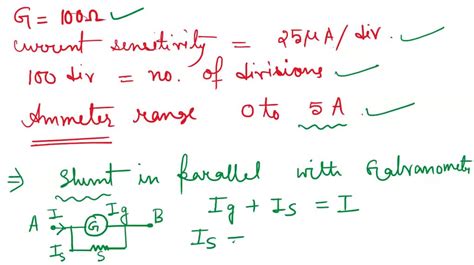 G = 100Ω ✓
Current sensitivity = 25μA/div. ✓
100 div = no. of divisions ✓
Ammeter range 0 to 5A. ✓
⇒ Shunt in parallel with Galvanometer
A I G Ig B
Is S
Ig + Is = I
Is =